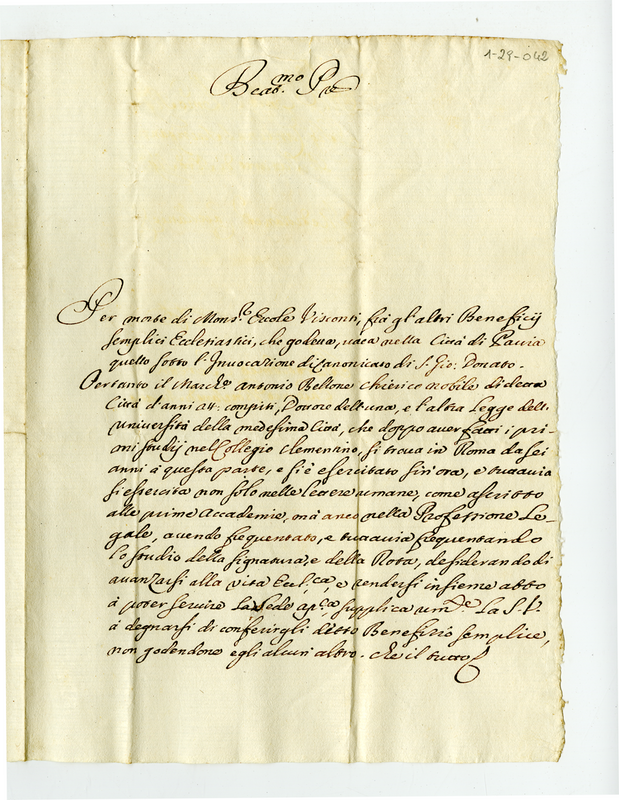 1-29-042
Beat.mo Pre
Per morte di Mons.r Ercole Visconti, frà gl'altri Beneficij
semplici Ecclesiastici, che godeva, vaca nella Città di Pavia
quello sotto l'Invocazione di Canonicato di S. Gio: Donato.
Pertanto il March.e Antonio Bellone Chierico nobile di detta
Città d'anni 24: compiti, Dottore dell'una, e l'altra Legge dell'
università della medesima Città, che doppo aver fatti i pri-
mi studij nel Collegio Clementino, si trova in Roma da sei
anni à questa parte, e si è esercitato sin'ora, e tuttavia
si essercita non solo nelle Lettere umane, come ascritto
alle prime Accademie, mà anco nella Professione Le-
gale, avendo frequentato, e tuttavia frequentando
lo studio della Signatura, e della Rota, desiderando di
avanzarsi alla vita Eccl.ca, e rendersi insieme atto
à poter servire La Sede ap.ca supplica um.te La S. V.
à degnarsi di conferirgli ditto Benefizio semplice,
non godendone egli alcun altro. Che il tutto